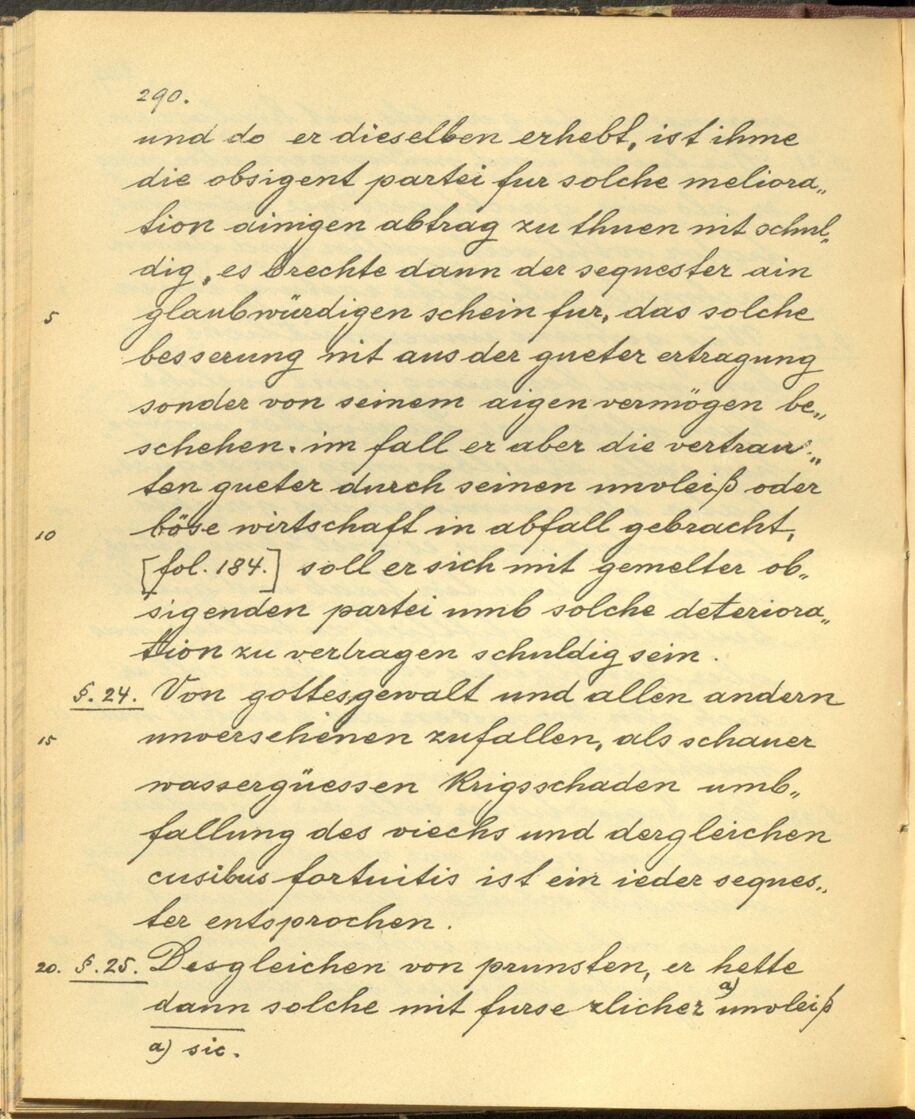 290.
und do er dieselben erhebt, ist ihme
die obsigent partei fur solche meliora„
tion ainigen abtrag zu thuen nit schul„
dig, es brechte dann der sequester ain
5 glaubwürdigen schein fur, das solche
besserung nit aus der gueter ertragung
sonder von seinem aigen vermögen be„
schehen. im fall er aber die vertrau„
ten gueter durch seinen unvleiß oder
10 böse wirtschaft in abfall gebracht,
[fol. 184.] soll er sich mit gemelter ob„
sigenden partei umb solche deteriora„
tion zu vertragen schuldig sein.
§. 24. Von gottesgewalt und allen andern
15 unversehenen zufallen, als schauer
wassergüessen Krigsschaden umb„
fallung des viechs und dergleichen
cusibus fortuitis ist ein ieder seques„
ter entsprochen.
20. §. 25. Desgleichen von prunsten, er hette
dann solche mit furse zlicher a) unvleiß
a) sic.